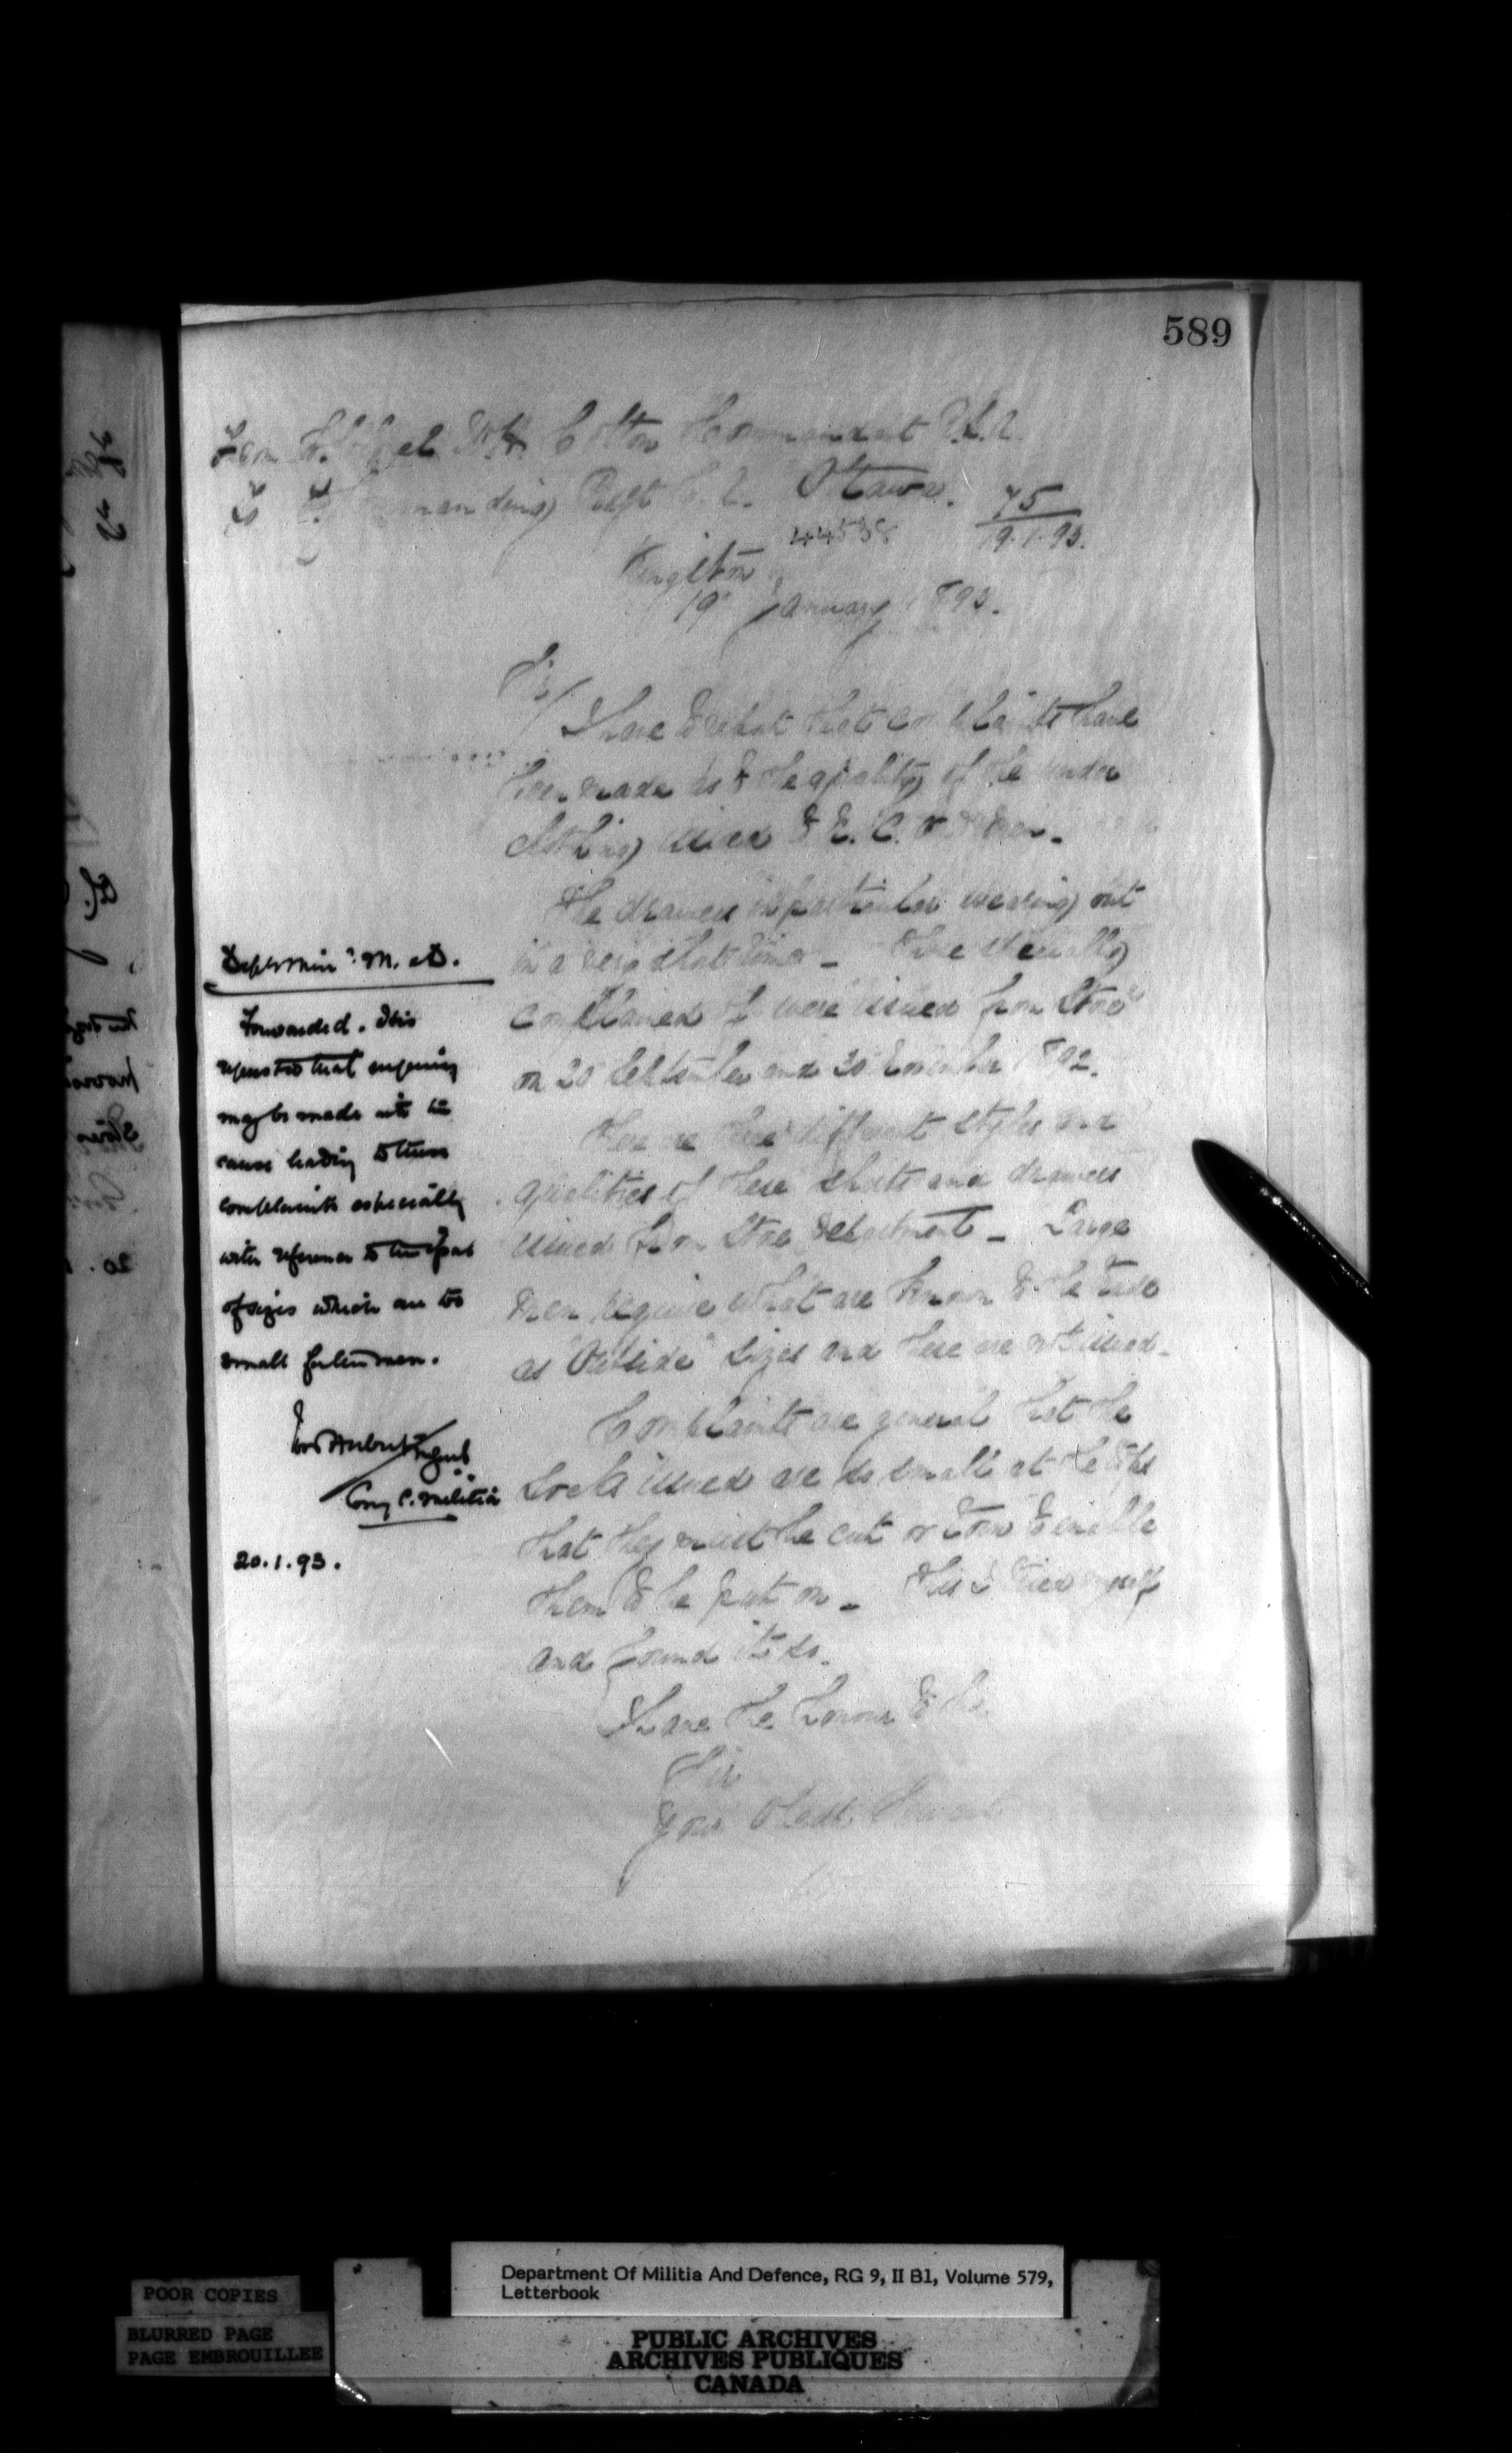 589
From Lt. Colonel W.H. Cotton Commandant
To Commanding Regt C.A. Ottawa. 75
44538 19.1.93.
Kingston
19 January 1893.
Sir/
I have to report that complaints have
been made as to the quality of the under
clothing issued to N.C.O. & Men.
The drawers in particular wearing out
in a very short time - Those specially
complained of were issued from Store
on 20 September and 30 November 1892.
There are three different styles and
qualities of these shirts and drawers
issued from Store Department - Large
men require what are known to the trade
as "Outside" sizes and these are not issued -
Complaints are general that the
socks issued are so small at the tops
that they must be cut or torn to enable
them to be put on - This I tried myself
and found it so.
I have the honour to be
Sir
Your Obedt. Servant
Dept. Minr. M. & D.
Forwarded. I
request that enquiry
may be made into the
cause leading to these
complaints especially
with reference to the issue
of sizes which are too
small for the men.
Ivor Herbert
Comg C. Militia
20.1.93.
Department Of Militia And Defence, RG 9, II B1, Volume 579,
Letterbook
POOR COPIES
BLURRED PAGE
PAGE EMBROUILLEE
PUBLIC ARCHIVES
ARCHIVES PUBLIQUES
CANADA